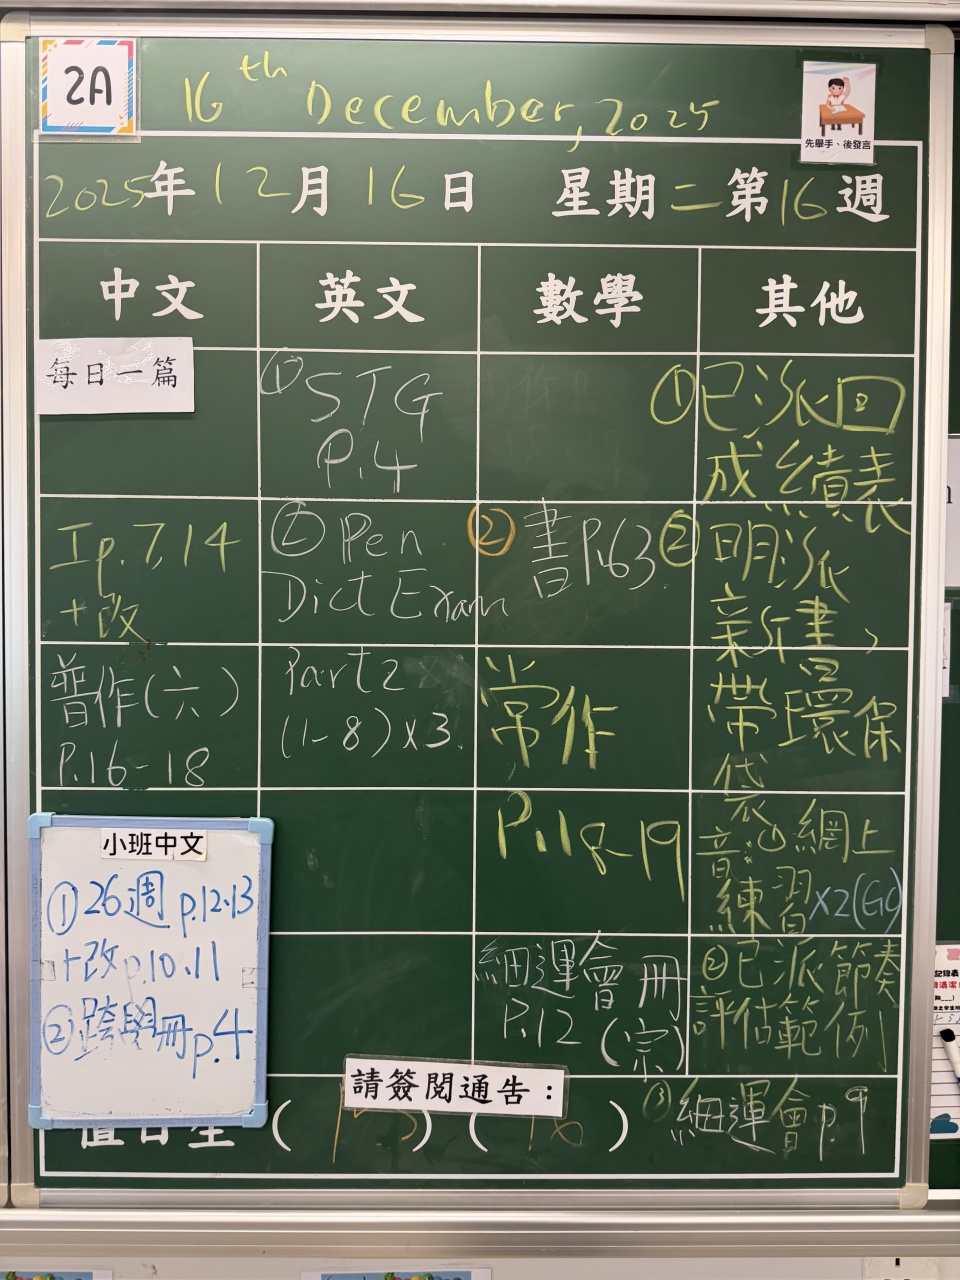 2A
16th December, 2025
先舉手、後發言
2025年12月16日 星期二第16週
中文 英文 數學 其他
每日一篇
Ip.7,14
+改
普作(六)
P.16-18
小班中文
①26週 p.12.13
+改p.10.11
②跨學冊p.4
①STG
P.4
②Pen
Dict Exam
Part 2
(1-8)x3.
②書P.63
常作
P.18-19
細運會冊
P.12(宗)
①已派回
成績表
②明派
新書、
帶環保
袋
音:①網上
練習x2(GC)
②已派節奏
評估範例
③細運會p.9
請簽閱通告：
值日生( 15 )( 16 )